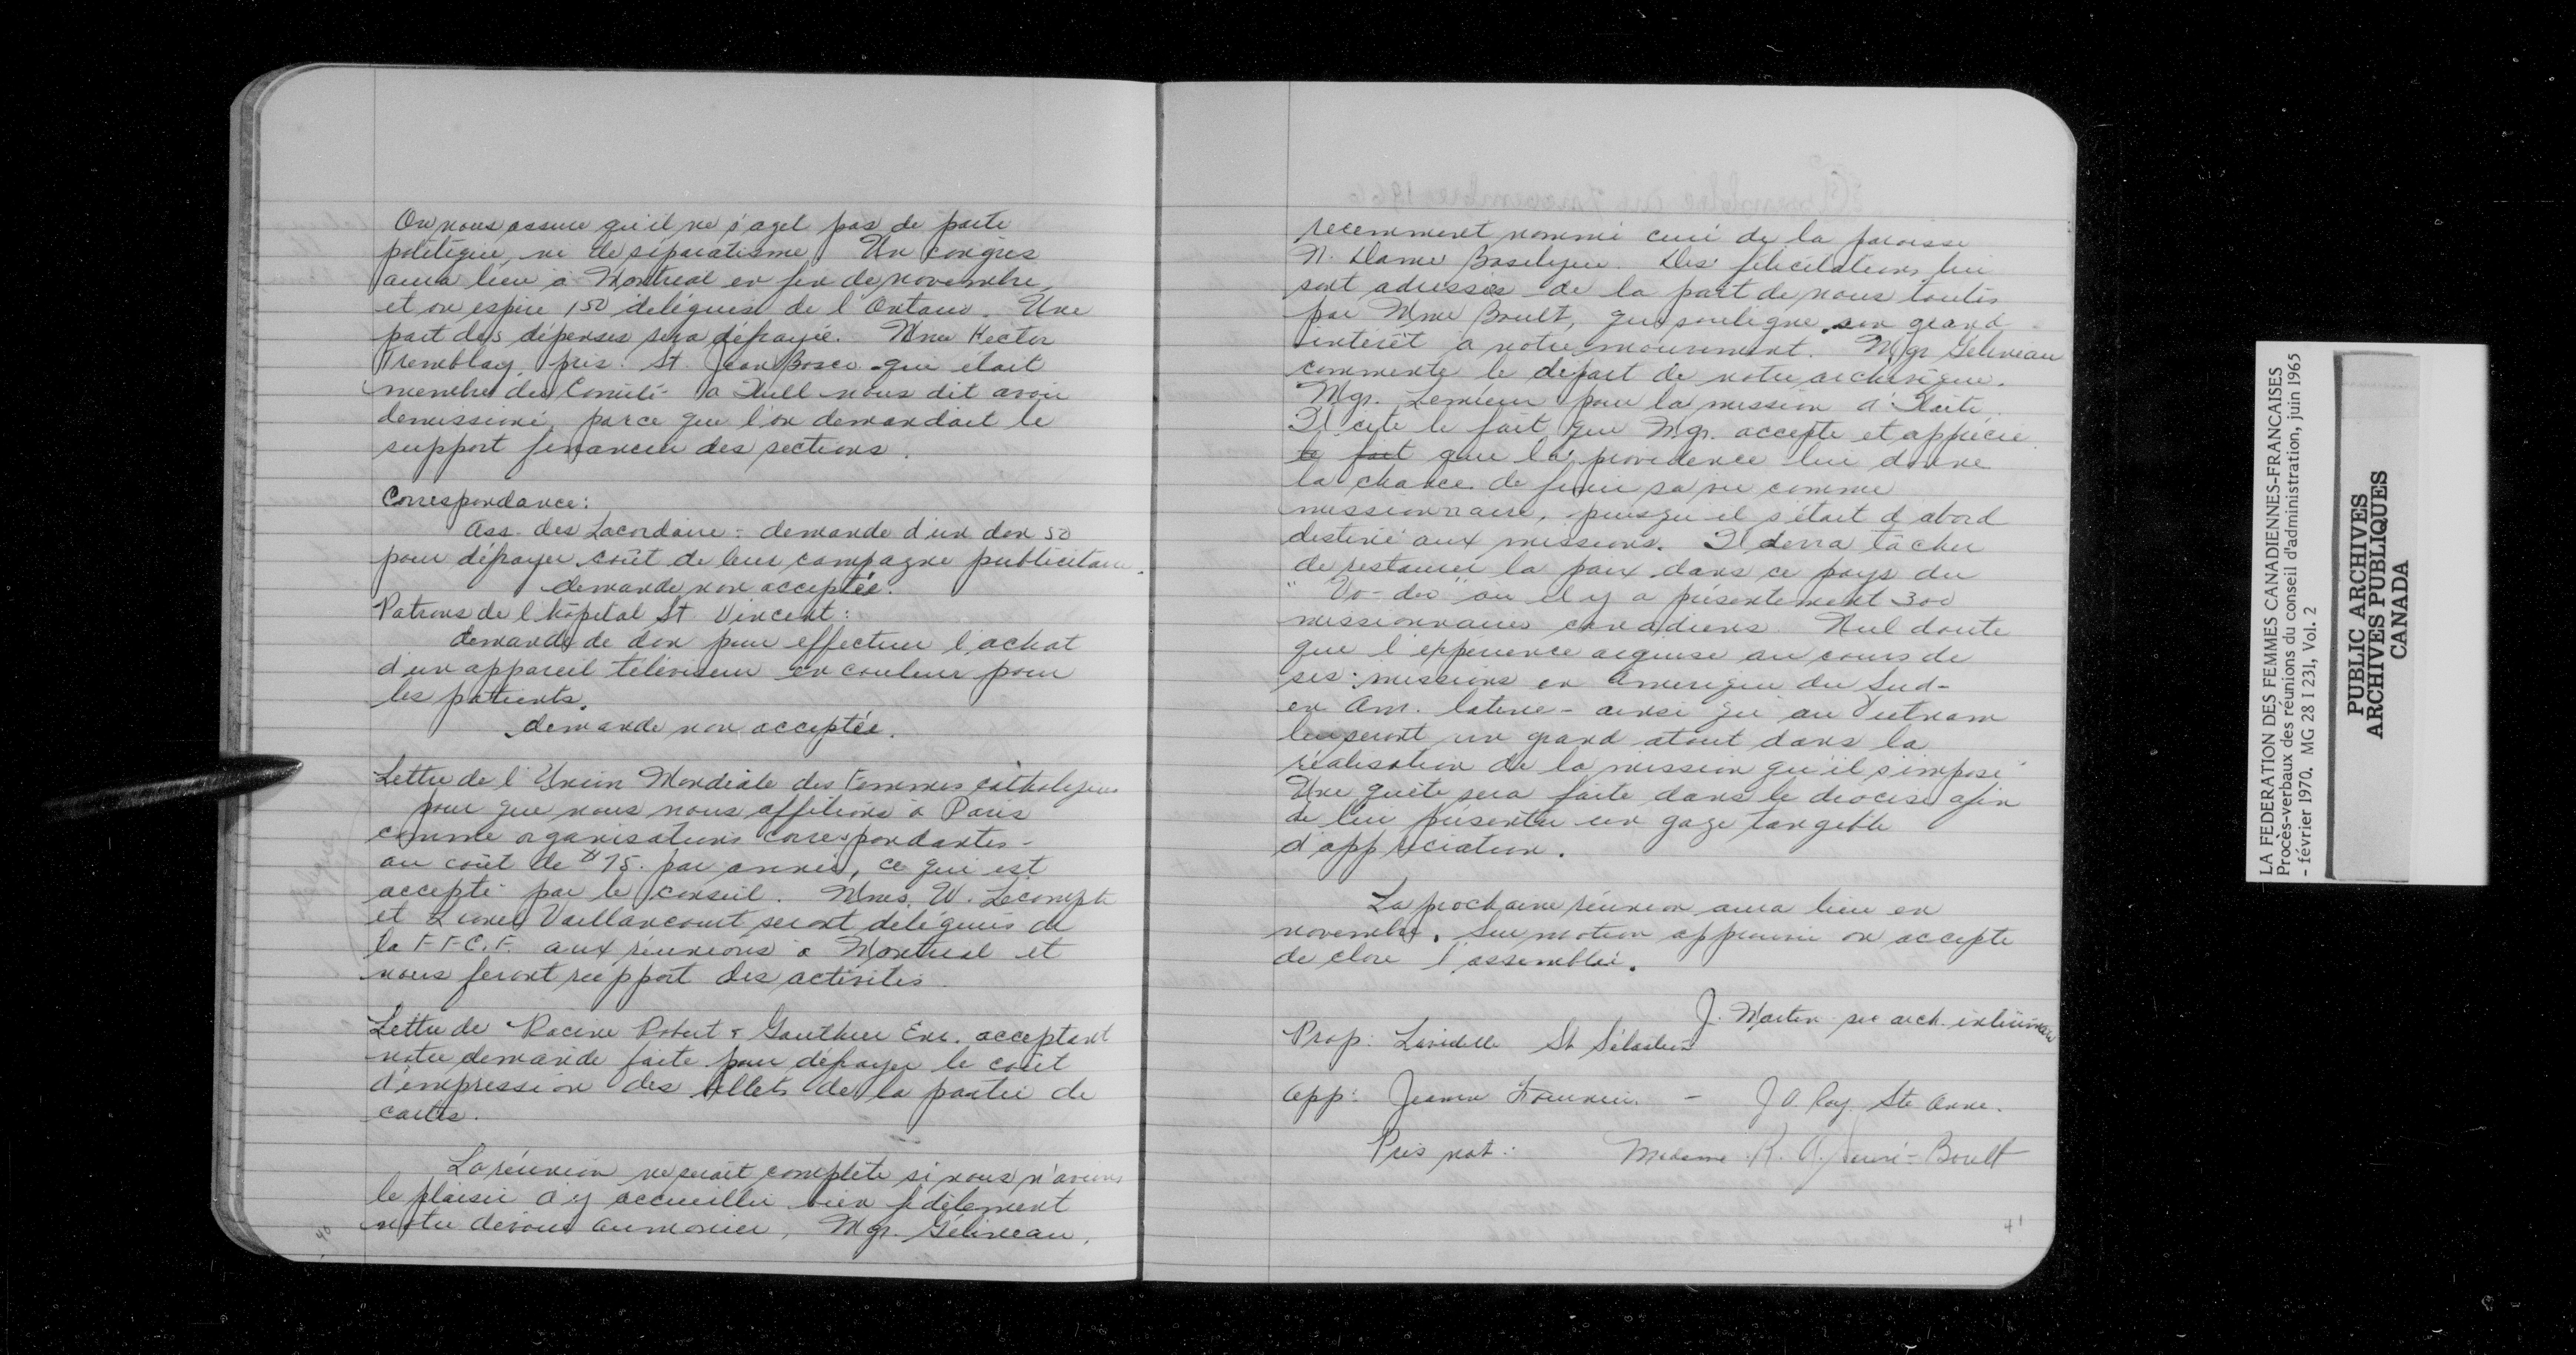 On nous assure qu'il ne s'agit pas de parti
politique, ni de séparatisme. Un congrès
aura lieu à Montréal en fin de novembre,
et on espère 150 délégués de l'Ontario. Une
part des dépenses sera défrayée. Mme Hector
Tremblay, prés. St. Jean Bosco qui était
membre du Comité à Hull nous dit avoir
demissioné, parce que l'on demandait le
support financier des sections.
Correspondance:
Ass. des Lacordaire - demande d'un don 50
pour défrayer coût de leur campagne publicitaire.
demande non acceptée.
Patrons de l'hôpital St Vincent:
demande de don pour effectuer l'achat
d'un appareil téléviseur en couleur pour
les patients.
demande non acceptée.
Lettre de l'Union Mondiale des Femmes catholiques
pour que nous nous affilions à Paris
comme organisations correspondantes -
au coût de $15. par année, ce qui est
accepté par le conseil. Mmes. W. Lecompte
et Lionel Vaillancourt seront déléguées de
la F.F.C.F. aux réunions à Montréal et
nous feront rapport des activités.
Lettre de Racine Robert & Gauthier Enr. acceptant
notre demande faite pour défrayer le coût
d'impression des billets de la partie de
cartes.
La réunion ne serait complète si nous n'avions
le plaisir d'y accueillir bien fidèlement
notre dévoué aumonier, Mgr. Gélineau,
40
recemment nommé curé de la paroisse
N. Dame Basilique. Des félicitations lui
sont adressées de la part de nous toutes
par Mme Boult, qui souligne son grand
intérêt à notre mouvement. Mgr Gélineau
commente le départ de notre archevêque.
Mgr. Lemieux pour la mission d'Haïti.
Il cite le fait que Mgr. accepte et apprécie
le fait que la providence lui donne
la chance de finir sa vie comme
missionnaire, puisqu'il s'était d'abord
destiné aux missions. Il devra tâcher
de restaurer la paix dans ce pays du
"Vo-doo" ou il y a présentement 300
missionnaires canadiens. Nul doute
que l'expérience acquise au cours de
ses missions en Amerique du Sud -
en Am. latine - ainsi qu'au Vietnam
lui seront un grand atout dans la
réalisation de la mission qu'il s'impose
Une quête sera faite dans le diocèse afin
de lui présenter un gage tangible
d'appréciation.
La prochaine réunion aura lieu en
novembre. Sur motion approuvée on accepte
de clore l'assemblée.
J. Martin sec arch. intérimaire
Prop: St Sébastien
App: - J. O. Roy Ste Anne.
Prés nat: Madame R. A. Boult
41
LA FEDERATION DES FEMMES CANADIENNES-FRANCAISES
Procès-verbaux des réunions du conseil d'administration, juin 1965
- février 1970. MG 28 I 231, Vol. 2
PUBLIC ARCHIVES
ARCHIVES PUBLIQUES
CANADA